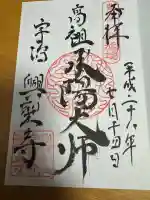 奉拝
平成二十六年
七月十四日
高祖承陽大師
宇治興聖寺